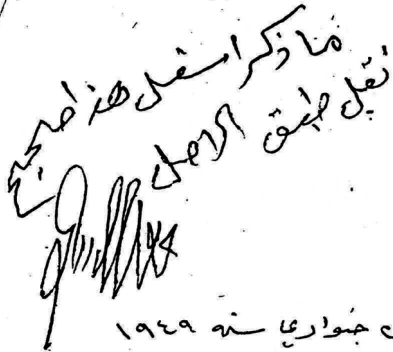 ما ذكر اسفل هذا صحيح
نقل طبق الاصل
جنواري سنه ١٩٤٩